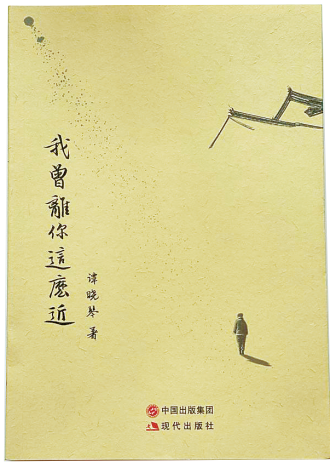 我曾離你這麼近
谭晓琴 著
中国出版集团
现代出版社